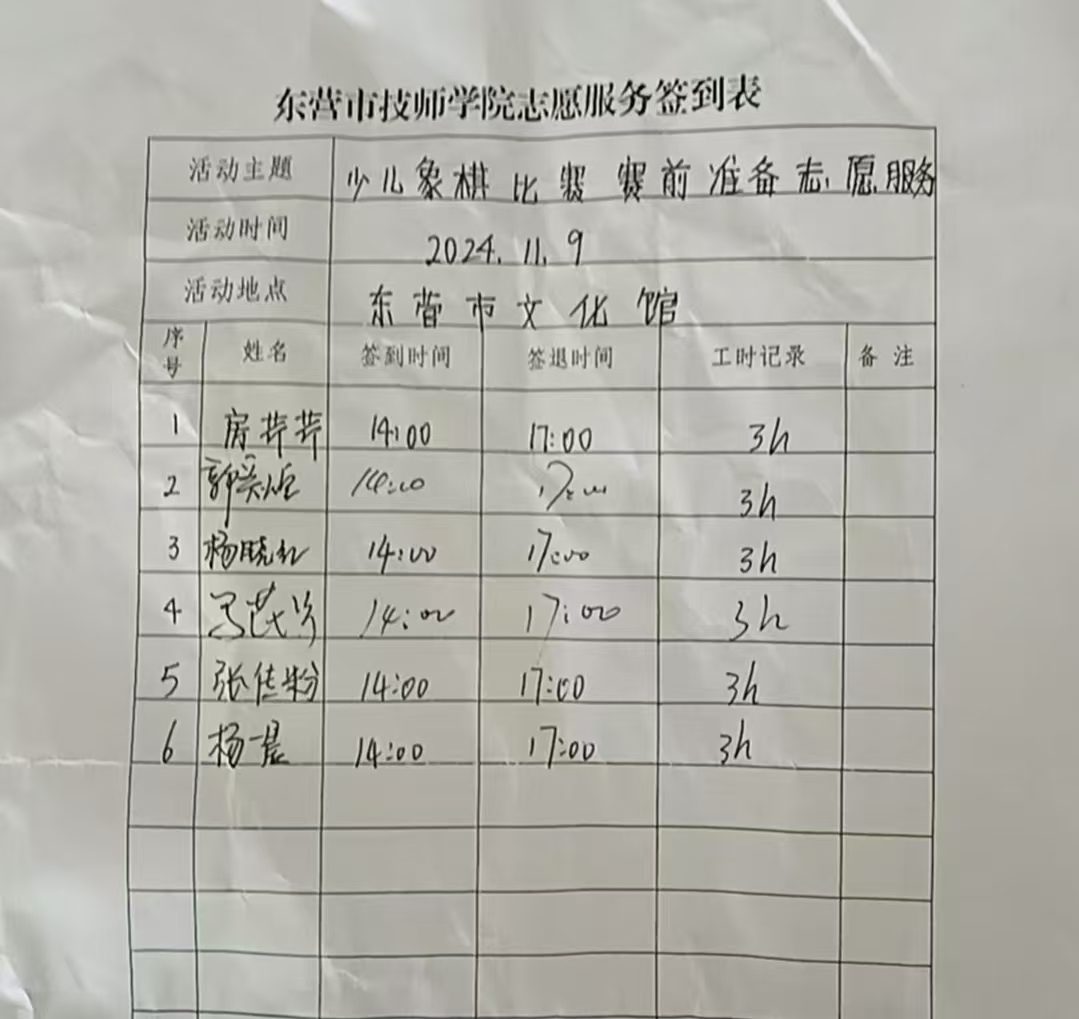 东营市技师学院志愿服务签到表
活动主题 少儿象棋比赛赛前准备志愿服务
活动时间 2024.11.9
活动地点 东营市文化馆
序号 姓名 签到时间 签退时间 工时记录 备注
1 房荠荠 14:00 17:00 3h
2 14:00 17:00 3h
3 杨晓红 14:00 17:00 3h
4 14:00 17:00 3h
5 张佳粉 14:00 17:00 3h
6 杨晨 14:00 17:00 3h